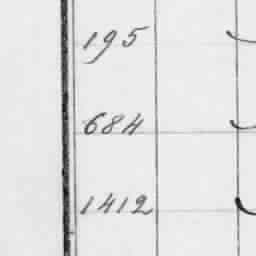 195
684
1412